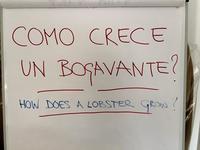 COMO CRECE
UN BOGAVANTE?
HOW DOES A LOBSTER GROW?